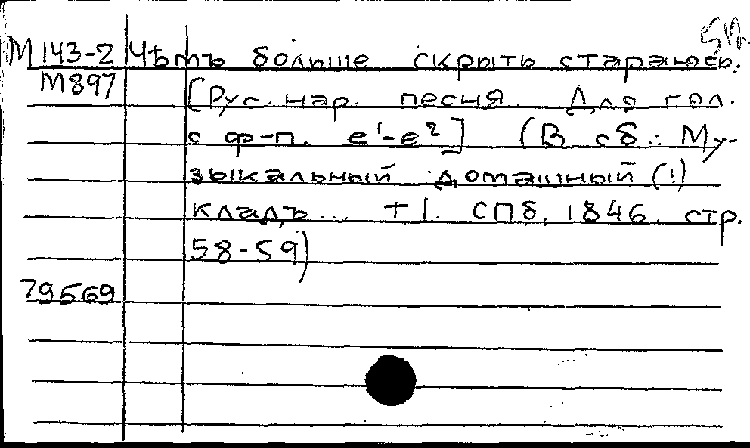 М 143-2 Чѣмъ больше скрыть стараюсь.
М897 [Рус. нар. песня. Для гол.
с ф-п. e¹-e²] (В сб.: Му-
зыкальный домашный (!)
кладъ... т 1. СПб, 1846, стр.
58-59)
79569